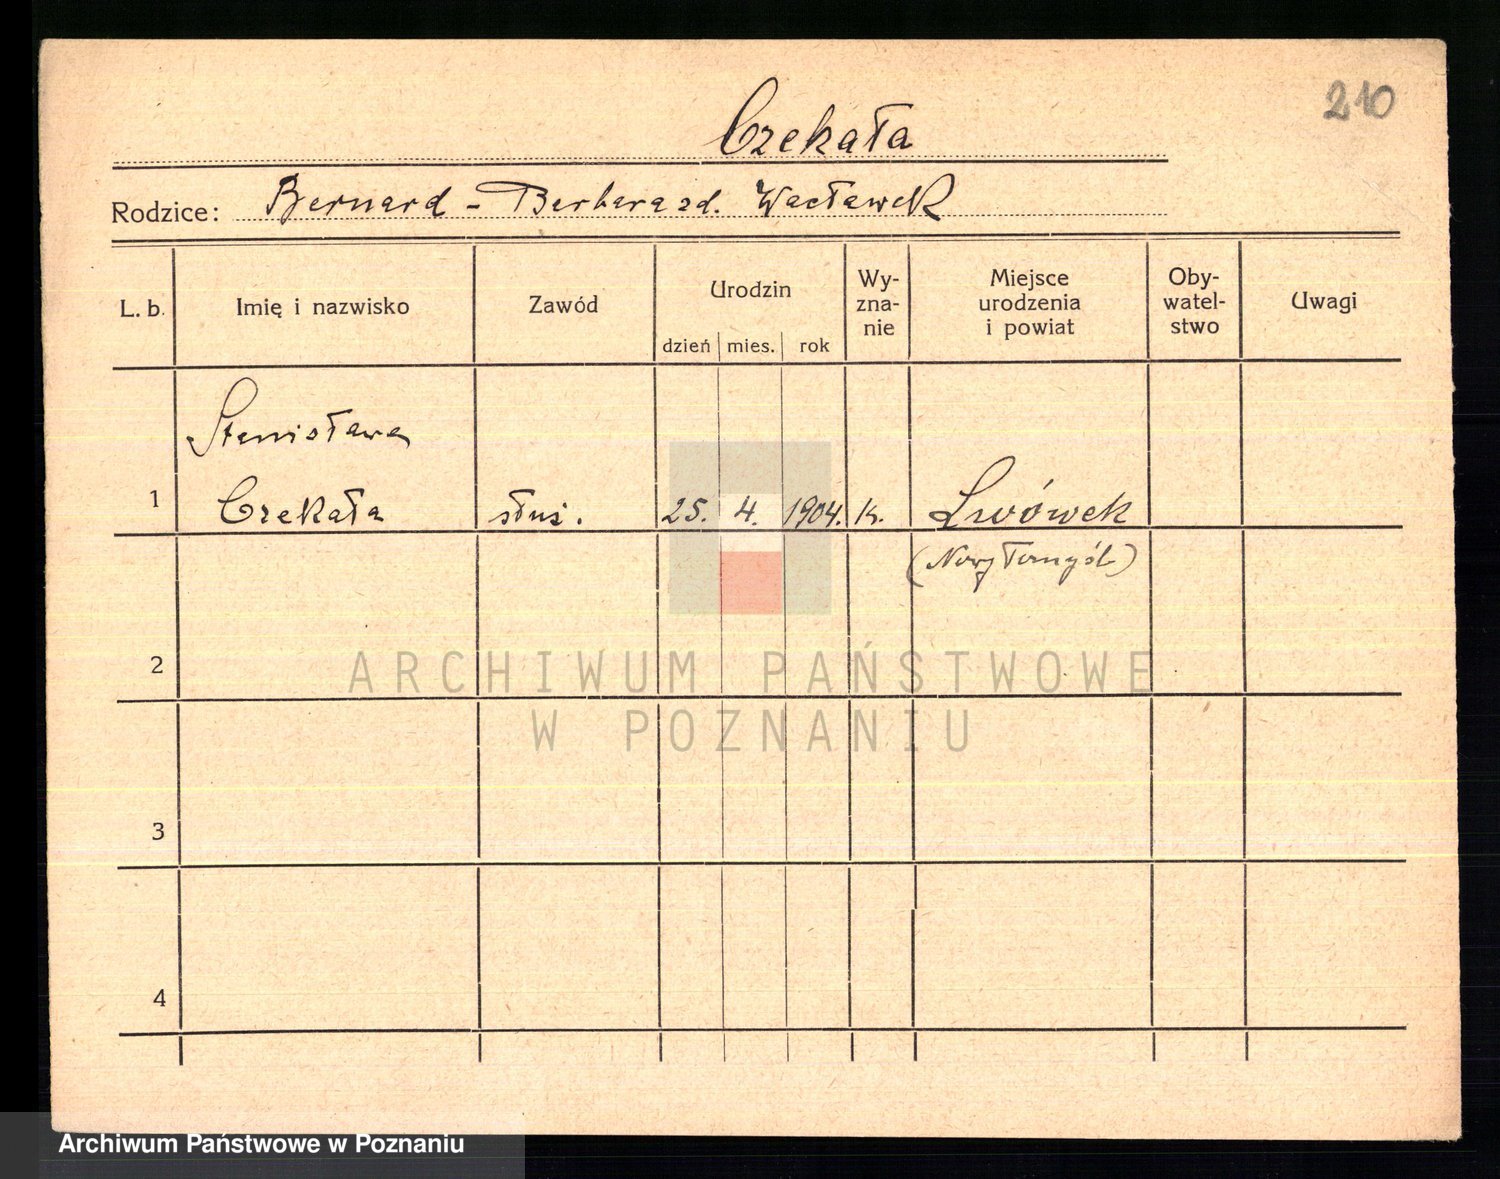 210
Czekała
Rodzice: Bernard - Barbara zd. Wacławek
L. b. Imię i nazwisko Zawód Urodzin dzień mies. rok Wy-zna-nie Miejsce urodzenia i powiat Oby-watel-stwo Uwagi
Stanisława
1 Czekała służ. 25. 4. 1904. k. Lwówek
(Nowy Tomyśl)
2
ARCHIWUM PAŃSTWOWE
W POZNANIU
3
4
Archiwum Państwowe w Poznaniu